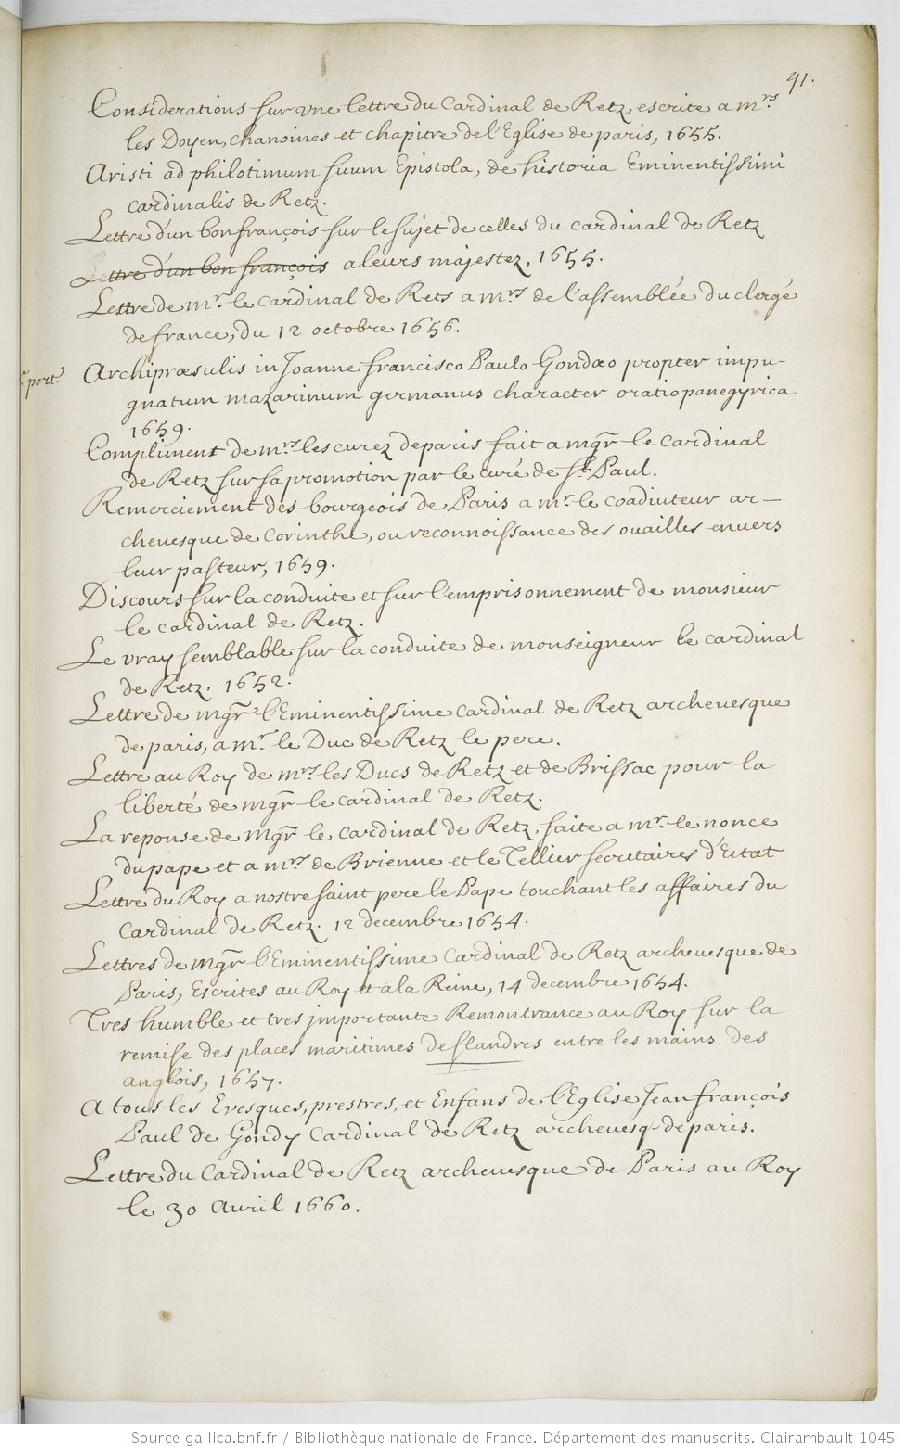 91.
Considerations sur une lettre du Cardinal de Retz escrite a mrs
les Doyen, chanoines et chapitre de l'Eglise de paris, 1655.
Aristi ad philotimum suum Epistola, de historia Eminentissimi
cardinalis de Retz.
Lettre d'un bon françois sur le sujet de celles du cardinal de Retz
Lettre d'un bon françois a leurs majestez, 1655.
Lettre de mr. le cardinal de Rets a mrs de l'assemblée du clergé
de france, du 12 octobre 1656.
port.
Archipræsulis in Joanne francisco Paulo Gondæo propter impu-
gnatum mazarinum germanus character oratio panegyrica
1659.
Compliment de mrs les curez de paris fait a mgr le cardinal
de Retz sur sa promotion par le curé de St Paul.
Remerciement des bourgeois de Paris a mr. le coadiuteur ar-
chevesque de Corinthe, ou reconnoissance des ouailles envers
leur pasteur, 1659.
Discours sur la conduite et sur l'emprisonnement de monsieur
le cardinal de Retz.
Le vray semblable sur la conduite de monseigneur le cardinal
de Retz. 1652.
Lettre de mgr l'Eminentissime cardinal de Retz archevesque
de paris, a mr. le Duc de Retz le pere.
Lettre au Roy de mrs les Ducs de Retz et de Brissac pour la
liberté de mgr le cardinal de Retz.
La reponse de Mgr le cardinal de Retz, faite a mr. le nonce
du pape et a mrs de Brienne et le Tellier secretaires d'Estat
Lettre du Roy a nostre saint pere le Pape touchant les affaires du
Cardinal de Retz. 12 decembre 1654.
Lettres de Mgr l'Eminentissime Cardinal de Retz archevesque de
Paris, Escrites au Roy et a la Reine, 14 decembre 1654.
Tres humble et tres importante Remontrance au Roy sur la
remise des places maritimes de flandres entre les mains des
anglois, 1657.
A tous les Evesques, prestres, et Enfans de l'Eglise Jean françois
Paul de Gondy Cardinal de Retz archevesq. de paris.
Lettre du Cardinal de Retz archevesque de Paris au Roy
le 30 Avril 1660.
Source gallica.bnf.fr / Bibliothèque nationale de France. Département des manuscrits. Clairambault 1045